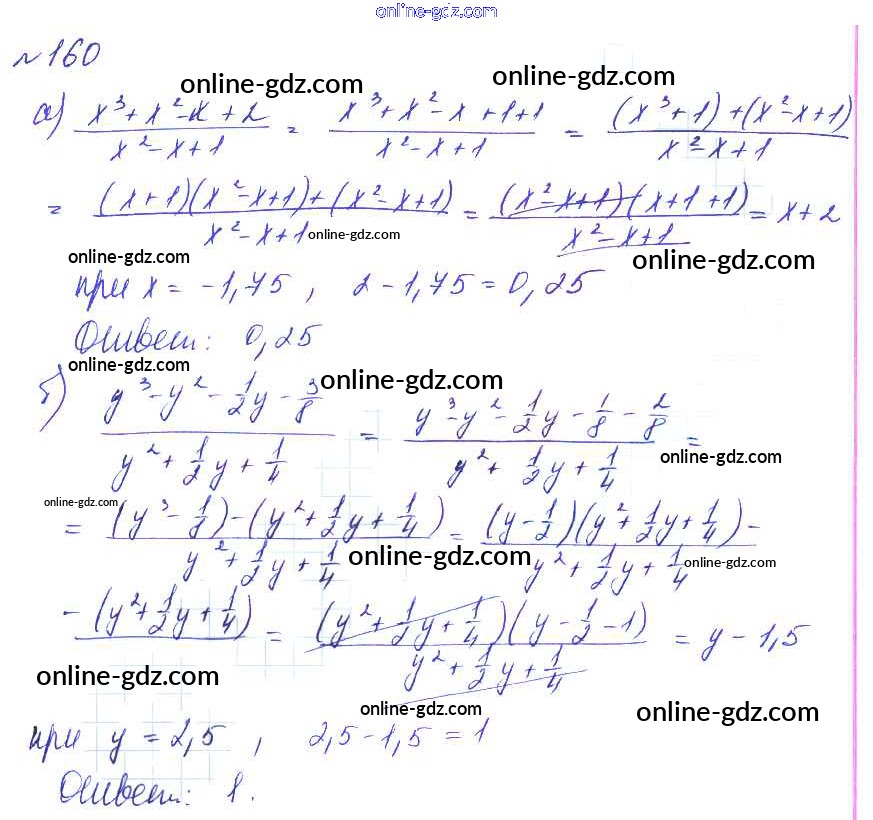 online-gdz.com
№160
online-gdz.com online-gdz.com
а) (x³+x²-x+2)/(x²-x+1) = (x³+x²-x+1+1)/(x²-x+1) = ((x³+1)+(x²-x+1))/(x²-x+1)
= ((x+1)(x²-x+1)+(x²-x+1))/(x²-x+1) = ((x²-x+1)(x+1+1))/(x²-x+1) = x+2
online-gdz.com
online-gdz.com online-gdz.com
при x = -1,75, 2-1,75=0,25
Ответ: 0,25
online-gdz.com online-gdz.com
б) (y³-y²-1/2y-3/8)/(y²+1/2y+1/4) = (y³-y²-1/2y-1/8-2/8)/(y²+1/2y+1/4) =
online-gdz.com
online-gdz.com
= ((y³-1/8)-(y²+1/2y+1/4))/(y²+1/2y+1/4) = ((y-1/2)(y²+1/2y+1/4)-
online-gdz.com online-gdz.com
-(y²+1/2y+1/4))/(y²+1/2y+1/4) = ((y²+1/2y+1/4)(y-1/2-1))/(y²+1/2y+1/4) = y-1,5
online-gdz.com
online-gdz.com online-gdz.com
при y = 2,5, 2,5-1,5=1
Ответ: 1.